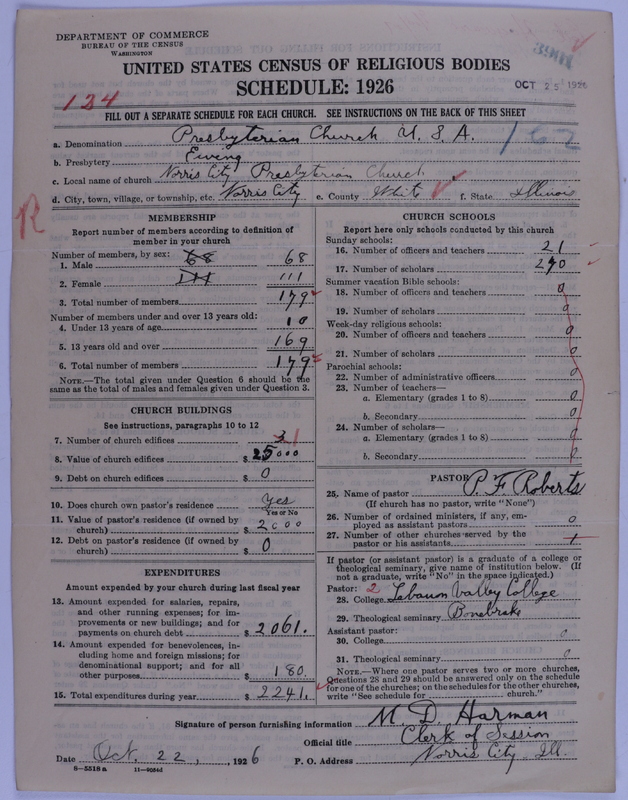 DEPARTMENT OF COMMERCE
BUREAU OF THE CENSUS
WASHINGTON
UNITED STATES CENSUS OF RELIGIOUS BODIES
SCHEDULE: 1926
OCT 25 1926
124
FILL OUT A SEPARATE SCHEDULE FOR EACH CHURCH. SEE INSTRUCTIONS ON THE BACK OF THIS SHEET
a. Denomination Presbyterian Church U. S. A.
162
b. Presbytery Ewing
c. Local name of church Norris City Presbyterian Church
d. City, town, village, or township, etc. Norris City e. County White f. State Illinois
R
MEMBERSHIP
Report number of members according to definition of
member in your church
Number of members, by sex: 68
1. Male 68
2. Female 111 111
3. Total number of members 179
Number of members under and over 13 years old:
4. Under 13 years of age 10
5. 13 years old and over 169
6. Total number of members 179
NOTE.—The total given under Question 6 should be the
same as the total of males and females given under Question 3.
CHURCH BUILDINGS
See instructions, paragraphs 10 to 12
7. Number of church edifices 1
8. Value of church edifices $ 25000
9. Debt on church edifices $ 0
10. Does church own pastor's residence Yes
Yes or No
11. Value of pastor's residence (if owned by
church) $ 2000
12. Debt on pastor's residence (if owned by
church) $ 0
EXPENDITURES
Amount expended by your church during last fiscal year
13. Amount expended for salaries, repairs,
and other running expenses; for im-
provements or new buildings; and for
payments on church debt $ 2061.
14. Amount expended for benevolences, in-
cluding home and foreign missions; for
denominational support; and for all
other purposes $ 180.
15. Total expenditures during year $ 2241.
CHURCH SCHOOLS
Report here only schools conducted by this church
Sunday schools:
16. Number of officers and teachers 21
17. Number of scholars 270
Summer vacation Bible schools:
18. Number of officers and teachers 0
19. Number of scholars 0
Week-day religious schools:
20. Number of officers and teachers 0
21. Number of scholars 0
Parochial schools:
22. Number of administrative officers 0
23. Number of teachers—
a. Elementary (grades 1 to 8) 0
b. Secondary 0
24. Number of scholars—
a. Elementary (grades 1 to 8) 0
b. Secondary 0
PASTOR
25. Name of pastor P. F. Roberts
(If church has no pastor, write "None")
26. Number of ordained ministers, if any, em-
ployed as assistant pastors 0
27. Number of other churches served by the
pastor or his assistants 1
If pastor (or assistant pastor) is a graduate of a college or
theological seminary, give name of institution below. (If
not a graduate, write "No" in the space indicated.)
Pastor: 2
28. College Lebanon Valley College
29. Theological seminary Bonebrake
Assistant pastor:
30. College 0
31. Theological seminary 0
NOTE.—Where one pastor serves two or more churches,
Questions 28 and 29 should be answered only on the schedule
for one of the churches; on the schedules for the other churches,
write "See schedule for church."
Signature of person furnishing information M. D. Harman
Official title Clerk of Session
Date Oct. 22, 1926 P. O. Address Norris City Ill.
8—5518a 11—9084d